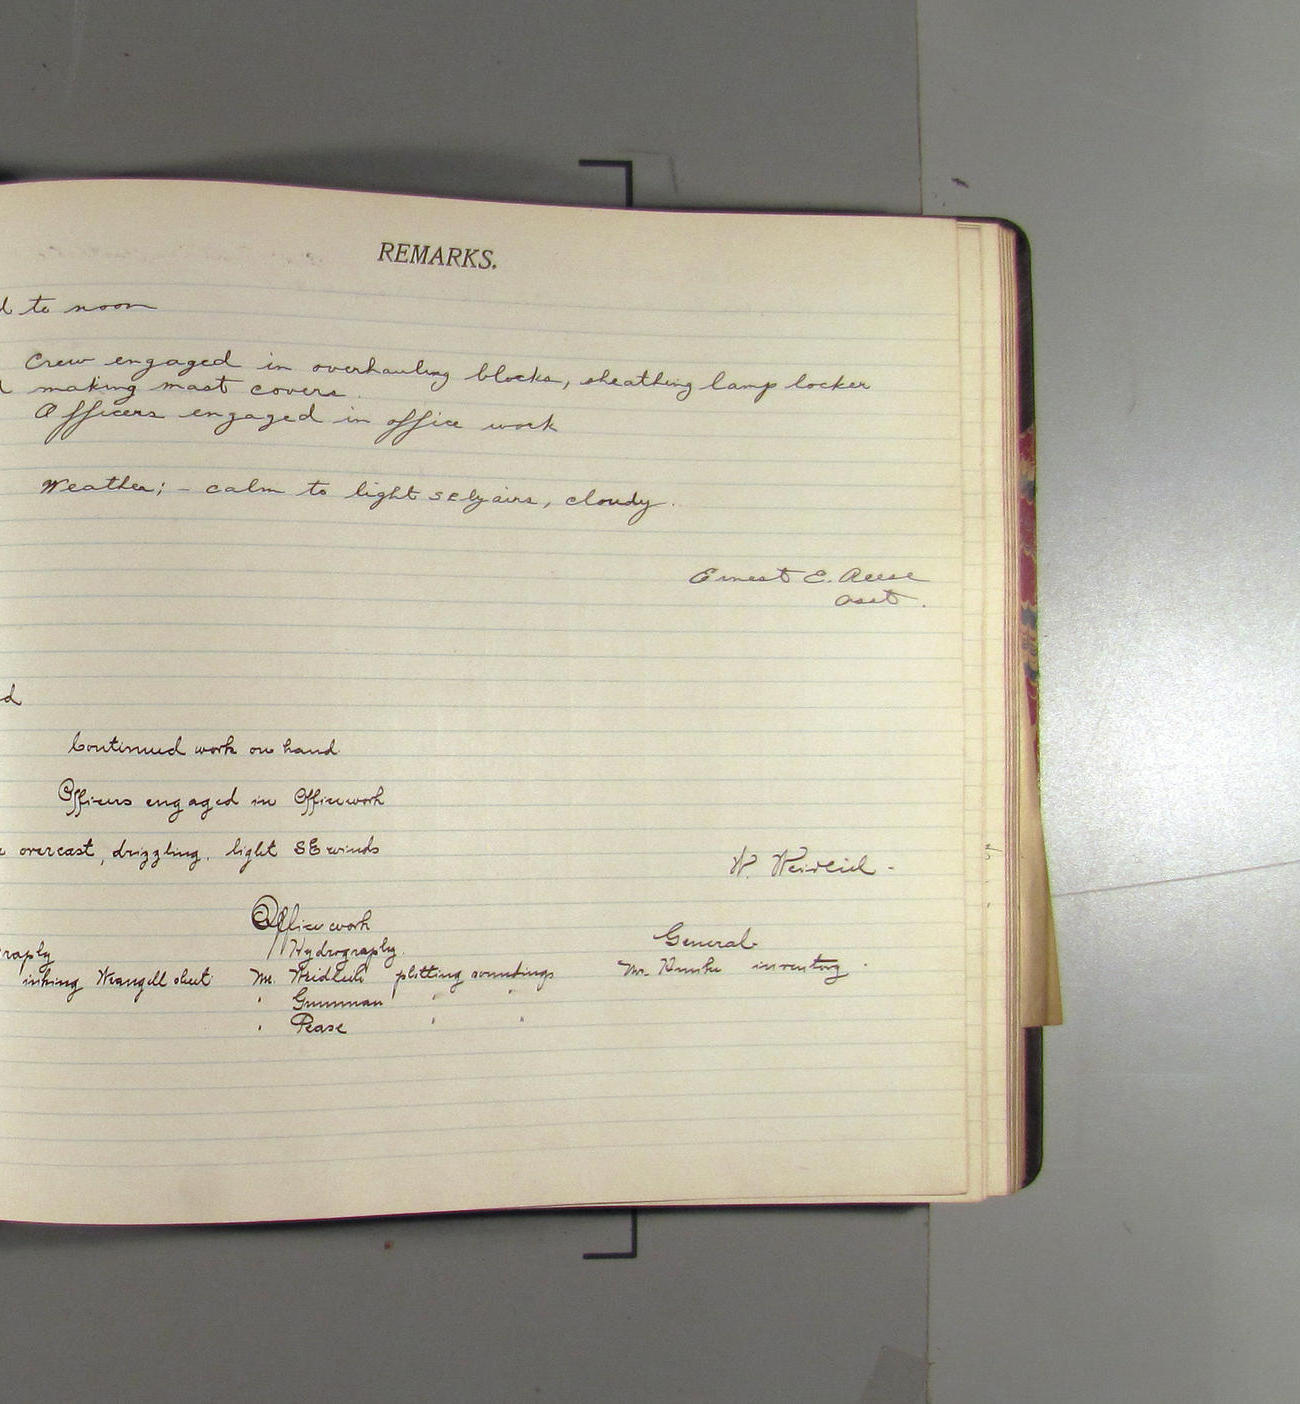 REMARKS.
d to noon
Crew engaged in overhauling blocks, sheathing lamp locker
d making mast covers.
Officers engaged in office work
Weather; - calm to light SEly airs, cloudy.
Ernest E. Reese
Asst.
d
Continued work on hand
Officers engaged in Office work
overcast, drizzling, light SE winds
W. Weidlich.
Office work
Hydrography
General
raphy
inking Wrangell sheet Mr. Weidlich plotting soundings Mr. inventory.
" " "
" Pease " "